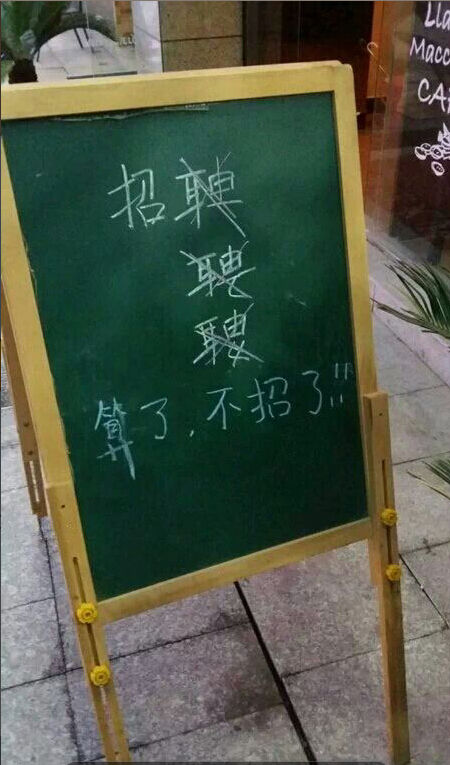 招聘
聘
聘
算了,不招了!!!
Lla
Macc
CA